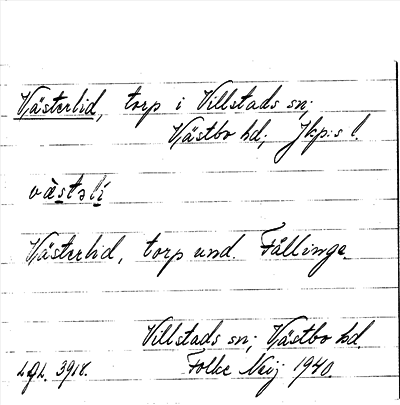 Västerlid, torp i Villstads sn;
Västbo hd; Jkp:s l.
västəli
Västerlid, torp und. Fållinge.
Villstads sn; Västbo hd.
L.G.L. 3918. Folke Neij 1940